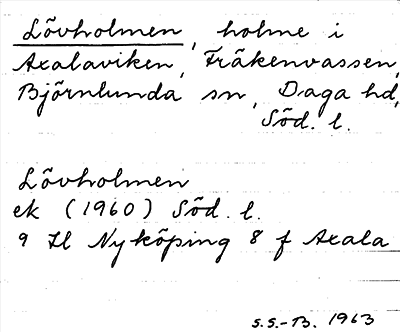 Lövholmen, holme i
Axalaviken, Fräkenvassen,
Björnlunda sn, Daga hd,
Söd. l.
Lövholmen
ek (1960) Söd. l.
9 Il Nyköping 8 f Axala
S.S.-B. 1963